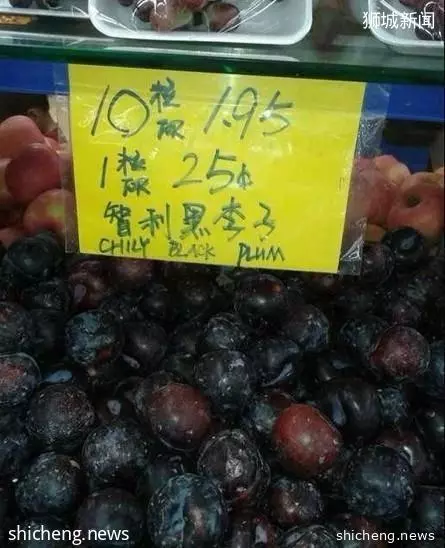 狮城新闻
10 粒 1.95
1 粒 25¢
智利黑李子
CHILY BLACK PLUM
shicheng.news
shicheng.news